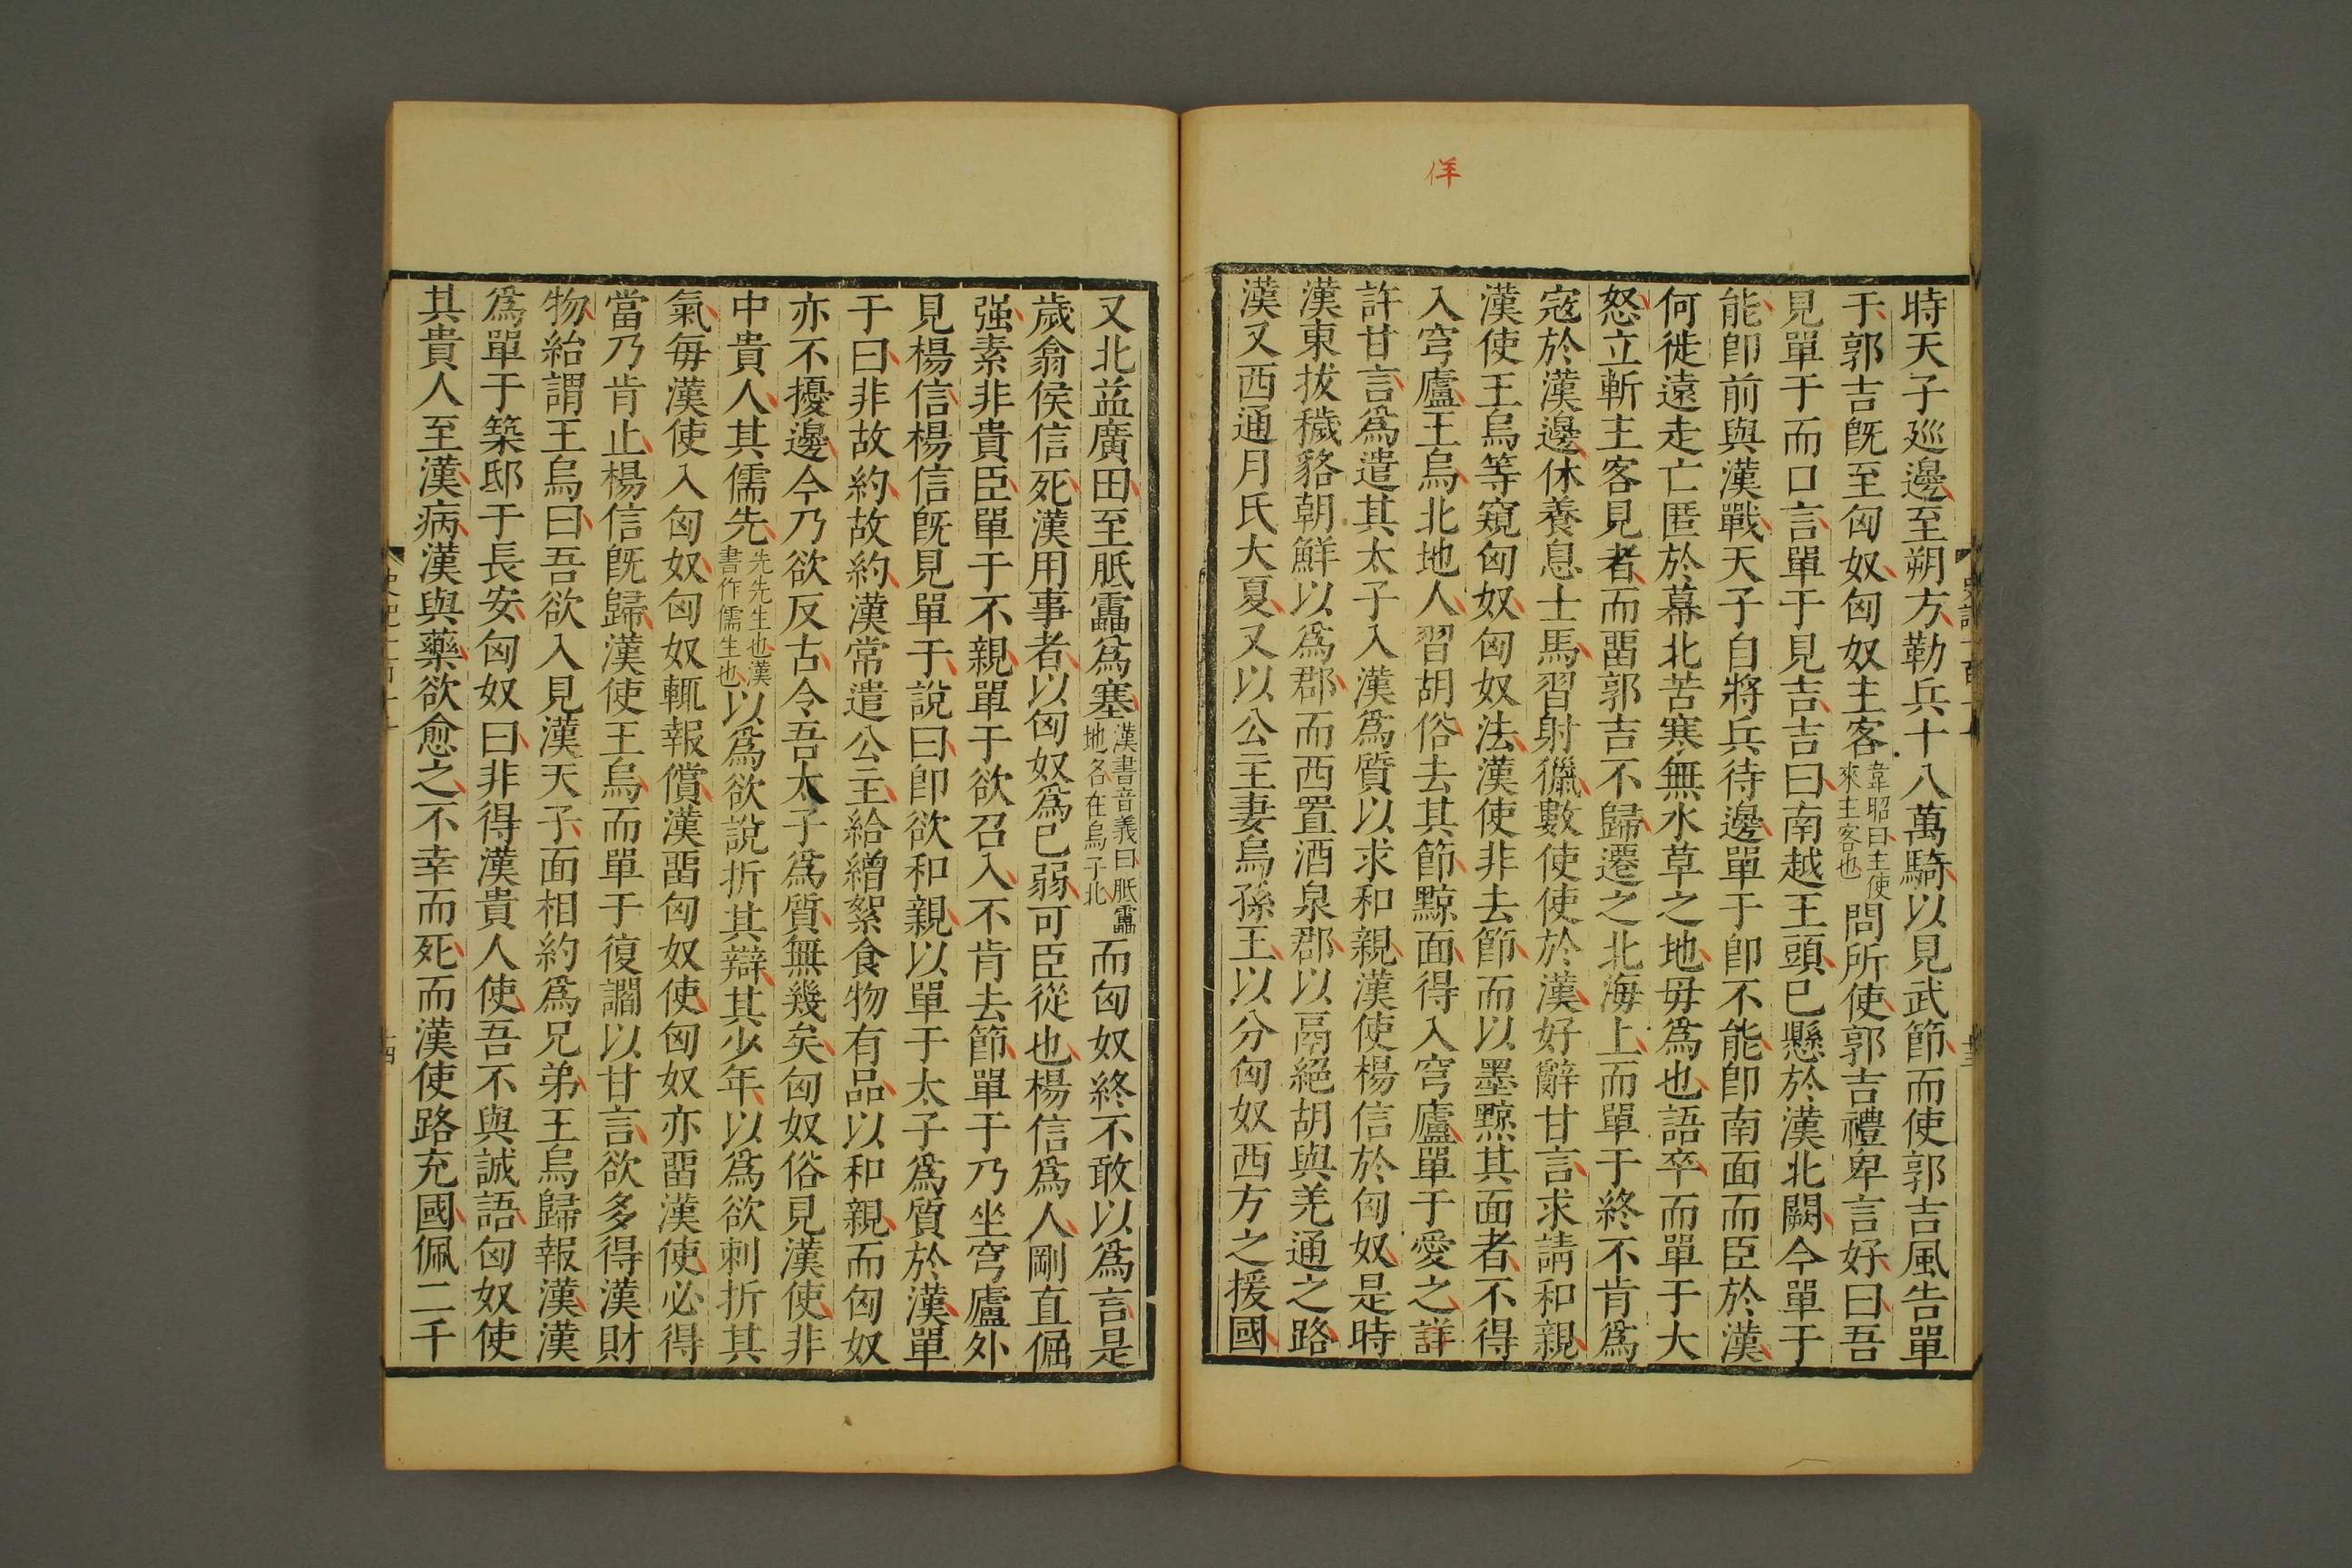 佯
時天子廵邊至朔方勒兵十八萬騎以見武節而使郭吉風告單
于郭吉旣至匈奴匈奴主客韋昭曰主使來主客也問所使郭吉禮卑言好曰吾
見單于而口言單于見吉吉曰南越王頭已懸於漢北闕今單于
能卽前與漢戰天子自將兵待邊單于卽不能卽南面而臣於漢
何徙遠走亡匿於幕北苦寒無水草之地毋爲也語卒而單于大
怒立斬主客見者而畱郭吉不歸遷之北海上而單于終不肯爲
寇於漢邊休養息士馬習射獵數使使於漢好辭甘言求請和親
漢使王烏等窺匈奴匈奴法漢使非去節而以墨黥其面者不得
入穹廬王烏北地人習胡俗去其節黥面得入穹廬單于愛之詳
許甘言爲遣其太子入漢爲質以求和親漢使楊信於匈奴是時
漢東拔穢貉朝鮮以爲郡而西置酒泉郡以鬲絕胡與羌通之路
漢又西通月氏大夏又以公主妻烏孫王以分匈奴西方之援國
又北益廣田至胘靁爲塞漢書音義曰胘靁地名在烏子北而匈奴終不敢以爲言是
歲翕侯信死漢用事者以匈奴爲已弱可臣從也楊信爲人剛直倔
强素非貴臣單于不親單于欲召入不肯去節單于乃坐穹廬外
見楊信楊信旣見單于說曰卽欲和親以單于太子爲質於漢單
于曰非故約故約漢常遣公主給繒絮食物有品以和親而匈奴
亦不擾邊今乃欲反古令吾太子爲質無幾矣匈奴俗見漢使非
中貴人其儒先先先生也漢書作儒生也以爲欲說折其辯其少年以爲欲刺折其
氣每漢使入匈奴匈奴輒報償漢畱匈奴使匈奴亦畱漢使必得
當乃肯止楊信旣歸漢使王烏而單于復讇以甘言欲多得漢財
物紿謂王烏曰吾欲入見漢天子面相約爲兄弟王烏歸報漢漢
爲單于築邸于長安匈奴曰非得漢貴人使吾不與誠語匈奴使
其貴人至漢病漢與藥欲愈之不幸而死而漢使路充國佩二千